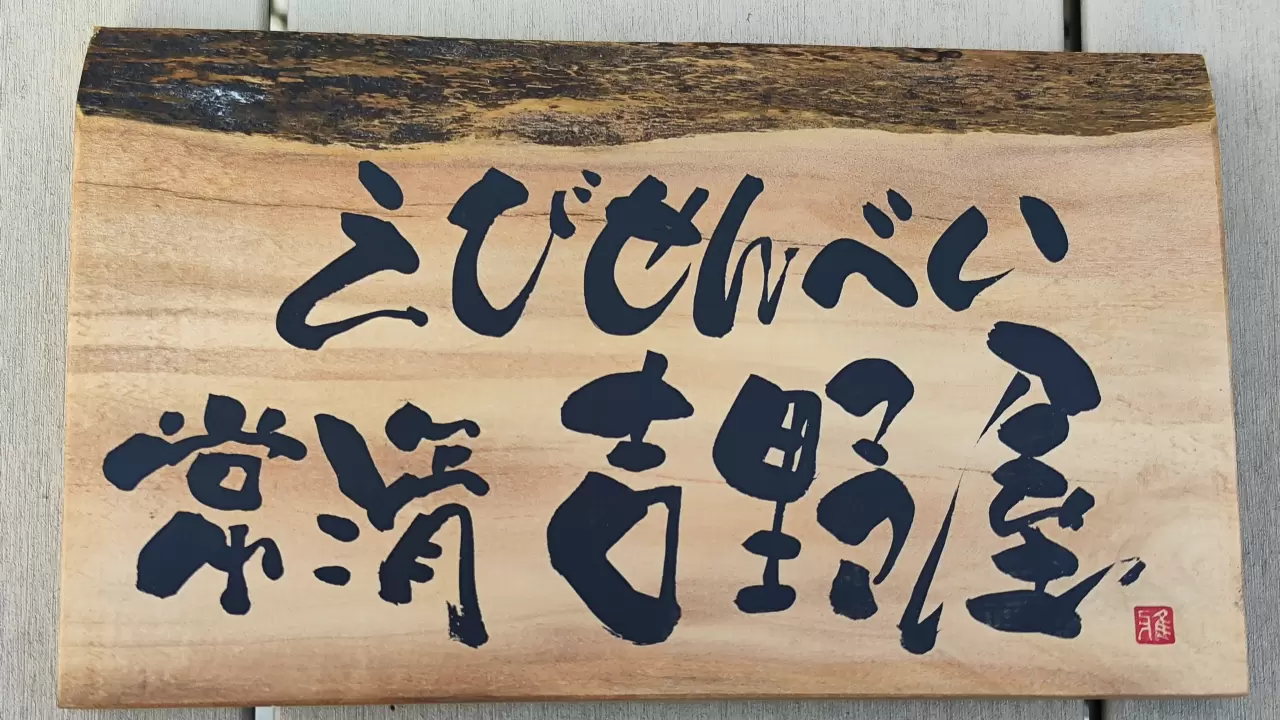 えびせんべい
常滑 吉野屋
雅